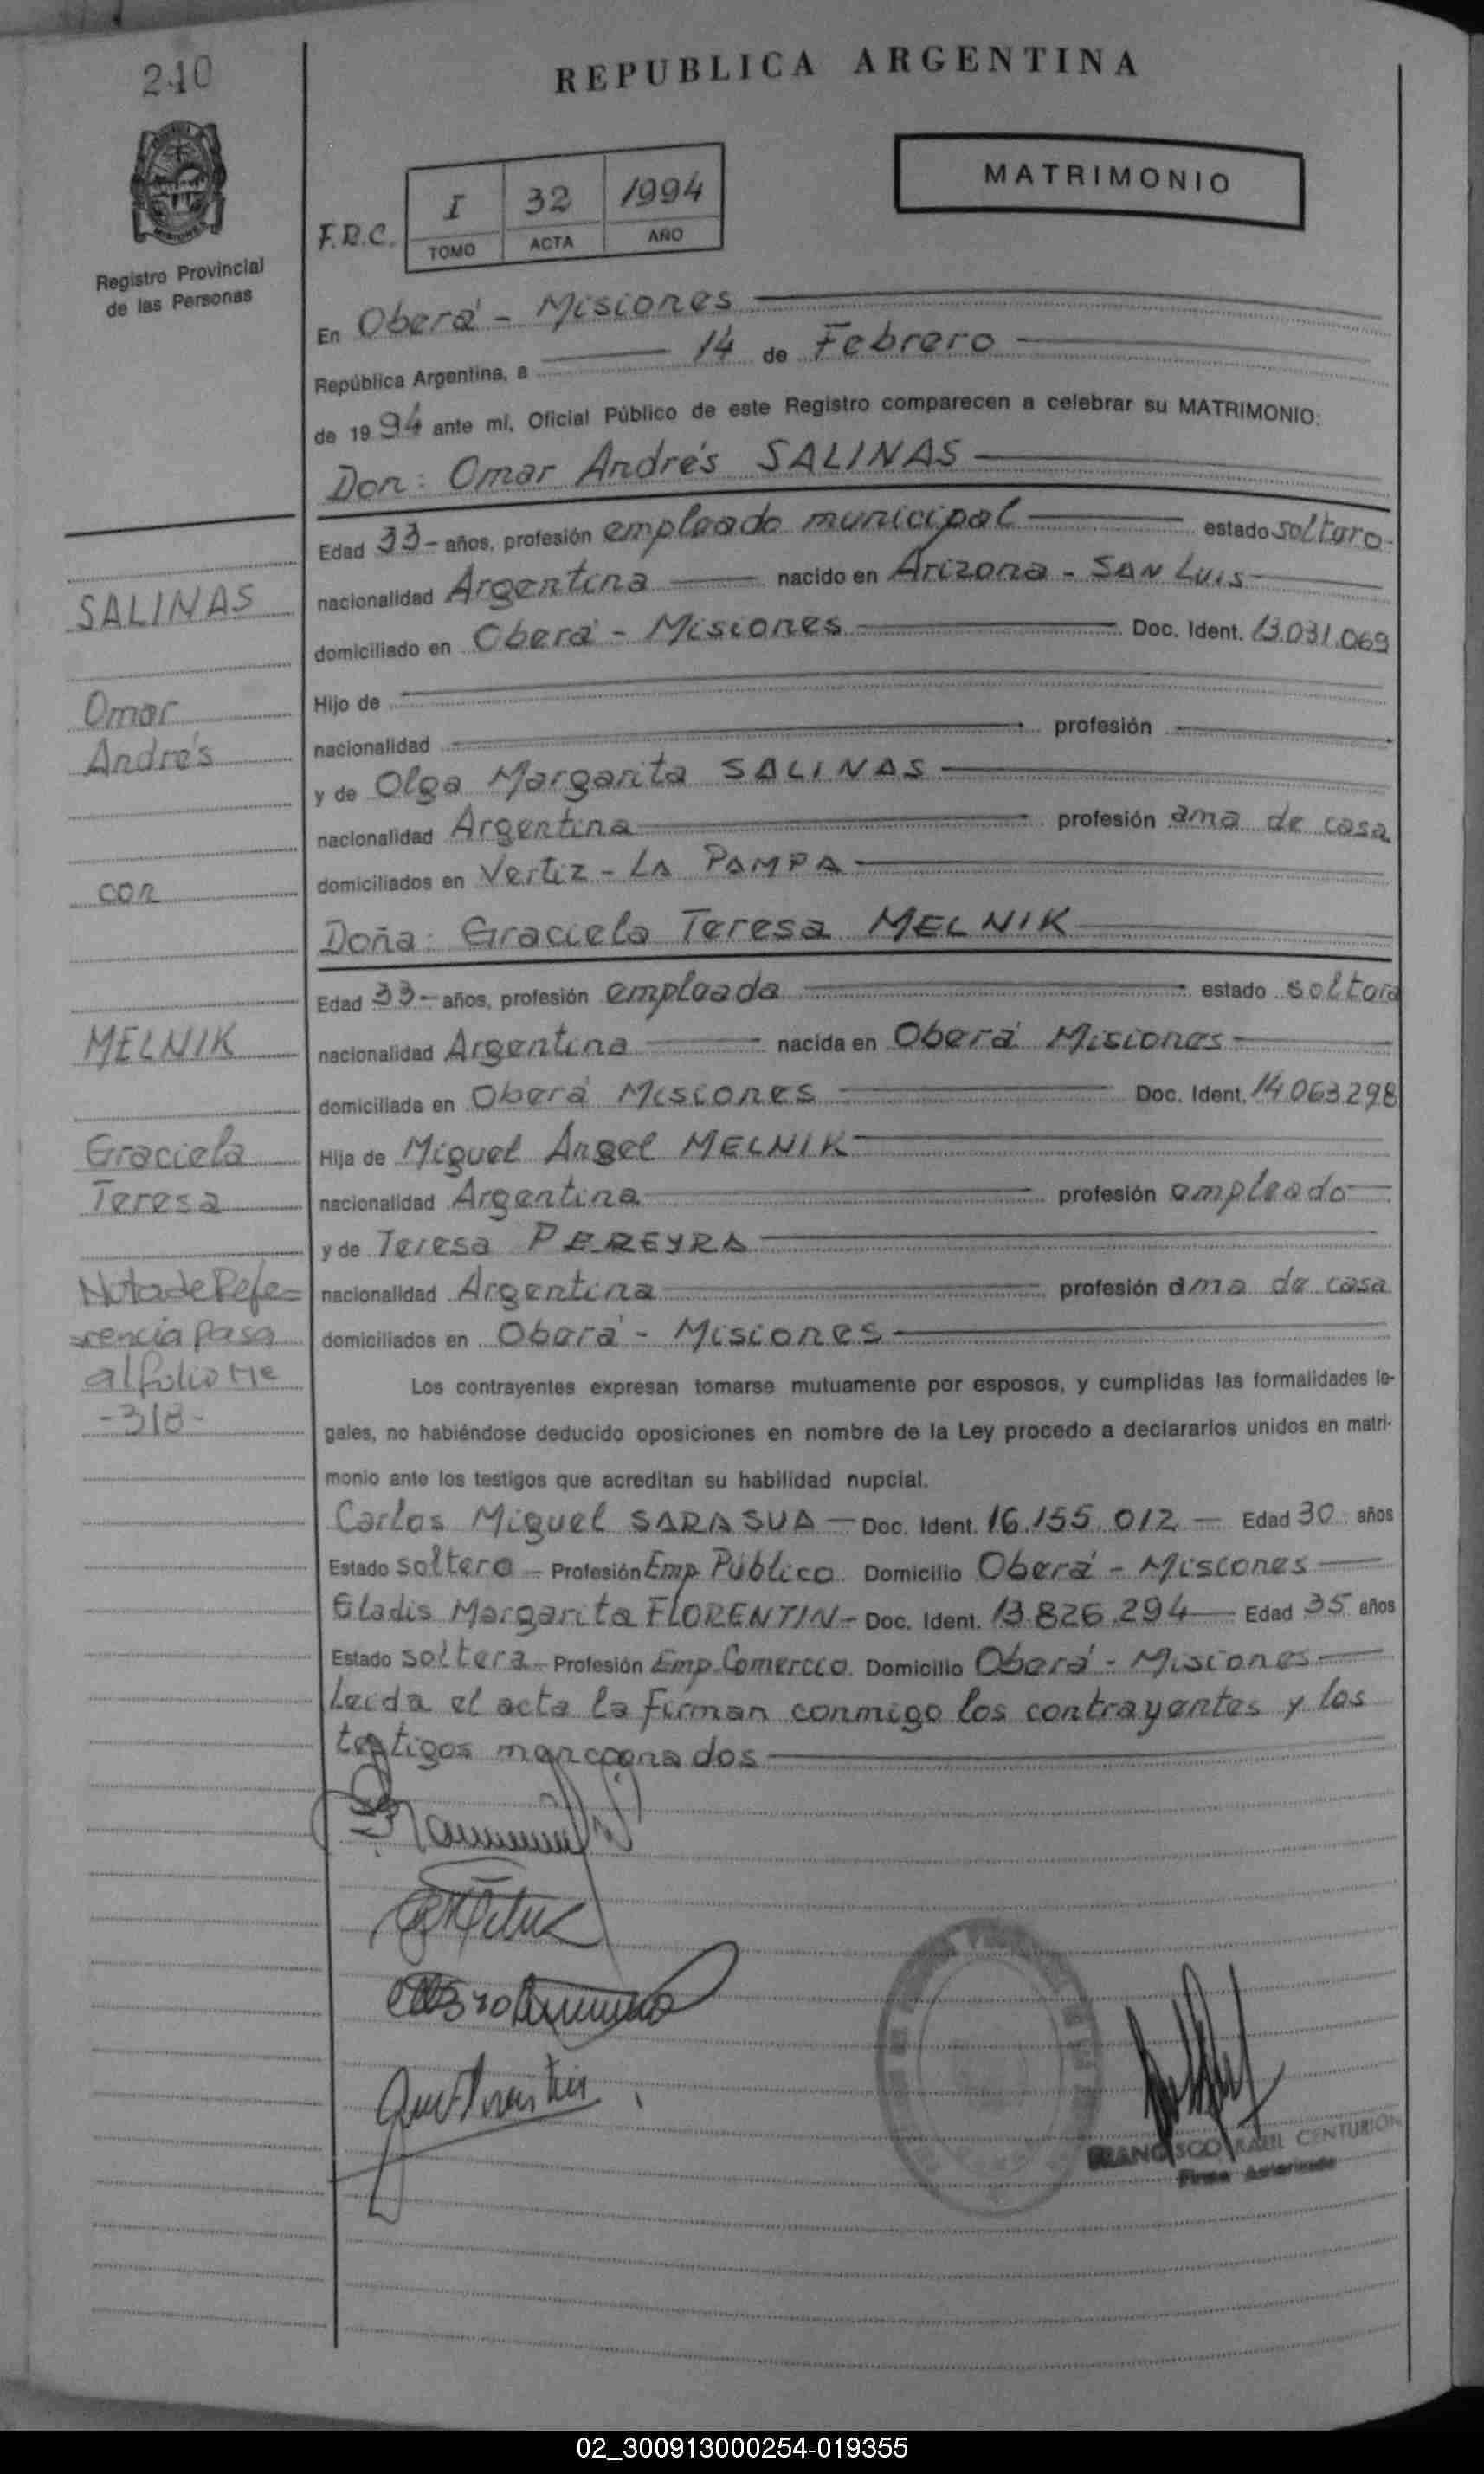 210
REPUBLICA ARGENTINA
MATRIMONIO
I 32 1994
F.R.C. TOMO ACTA AÑO
MISIONES
Registro Provincial
de las Personas
En Oberá - Misiones
República Argentina, a 14 de Febrero
de 1994 ante mi, Oficial Público de este Registro comparecen a celebrar su MATRIMONIO:
Don: Omar Andrés SALINAS
Edad 33- años, profesión empleado municipal estado soltero-
nacionalidad Argentina nacido en Arizona - SAN LUIS
domiciliado en Oberá - Misiones Doc. Ident. 13.031.069
Hijo de
nacionalidad profesión
y de Olga Margarita SALINAS
nacionalidad Argentina profesión ama de casa
domiciliados en Vertiz - LA PAMPA
Doña: Graciela Teresa MELNIK
Edad 33- años, profesión empleada estado soltera
nacionalidad Argentina nacida en Oberá Misiones
domiciliada en Oberá Misiones Doc. Ident. 14.063.298
Hija de Miguel Angel MELNIK
nacionalidad Argentina profesión empleado
y de Teresa PEREYRA
nacionalidad Argentina profesión ama de casa
domiciliados en Oberá - Misiones
Los contrayentes expresan tomarse mutuamente por esposos, y cumplidas las formalidades le-
gales, no habiéndose deducido oposiciones en nombre de la Ley procedo a declararlos unidos en matri-
monio ante los testigos que acreditan su habilidad nupcial.
Carlos Miguel SARASUA - Doc. Ident. 16.155.012 - Edad 30 años
Estado soltero - Profesión Emp. Público Domicilio Oberá - Misiones
Gladis Margarita FLORENTIN - Doc. Ident. 13.826.294 Edad 35 años
Estado soltera - Profesión Emp. Comercio. Domicilio Oberá - Misiones
Leída el acta la firman conmigo los contrayentes y los
testigos mencionados
SALINAS
Omar
Andrés
con
MELNIK
Graciela
Teresa
Nota de Refe=
rencia Pasa
al folio Nº
-318-
FRANCISCO RAUL CENTURION
Firma Autorizada
02_300913000254-019355